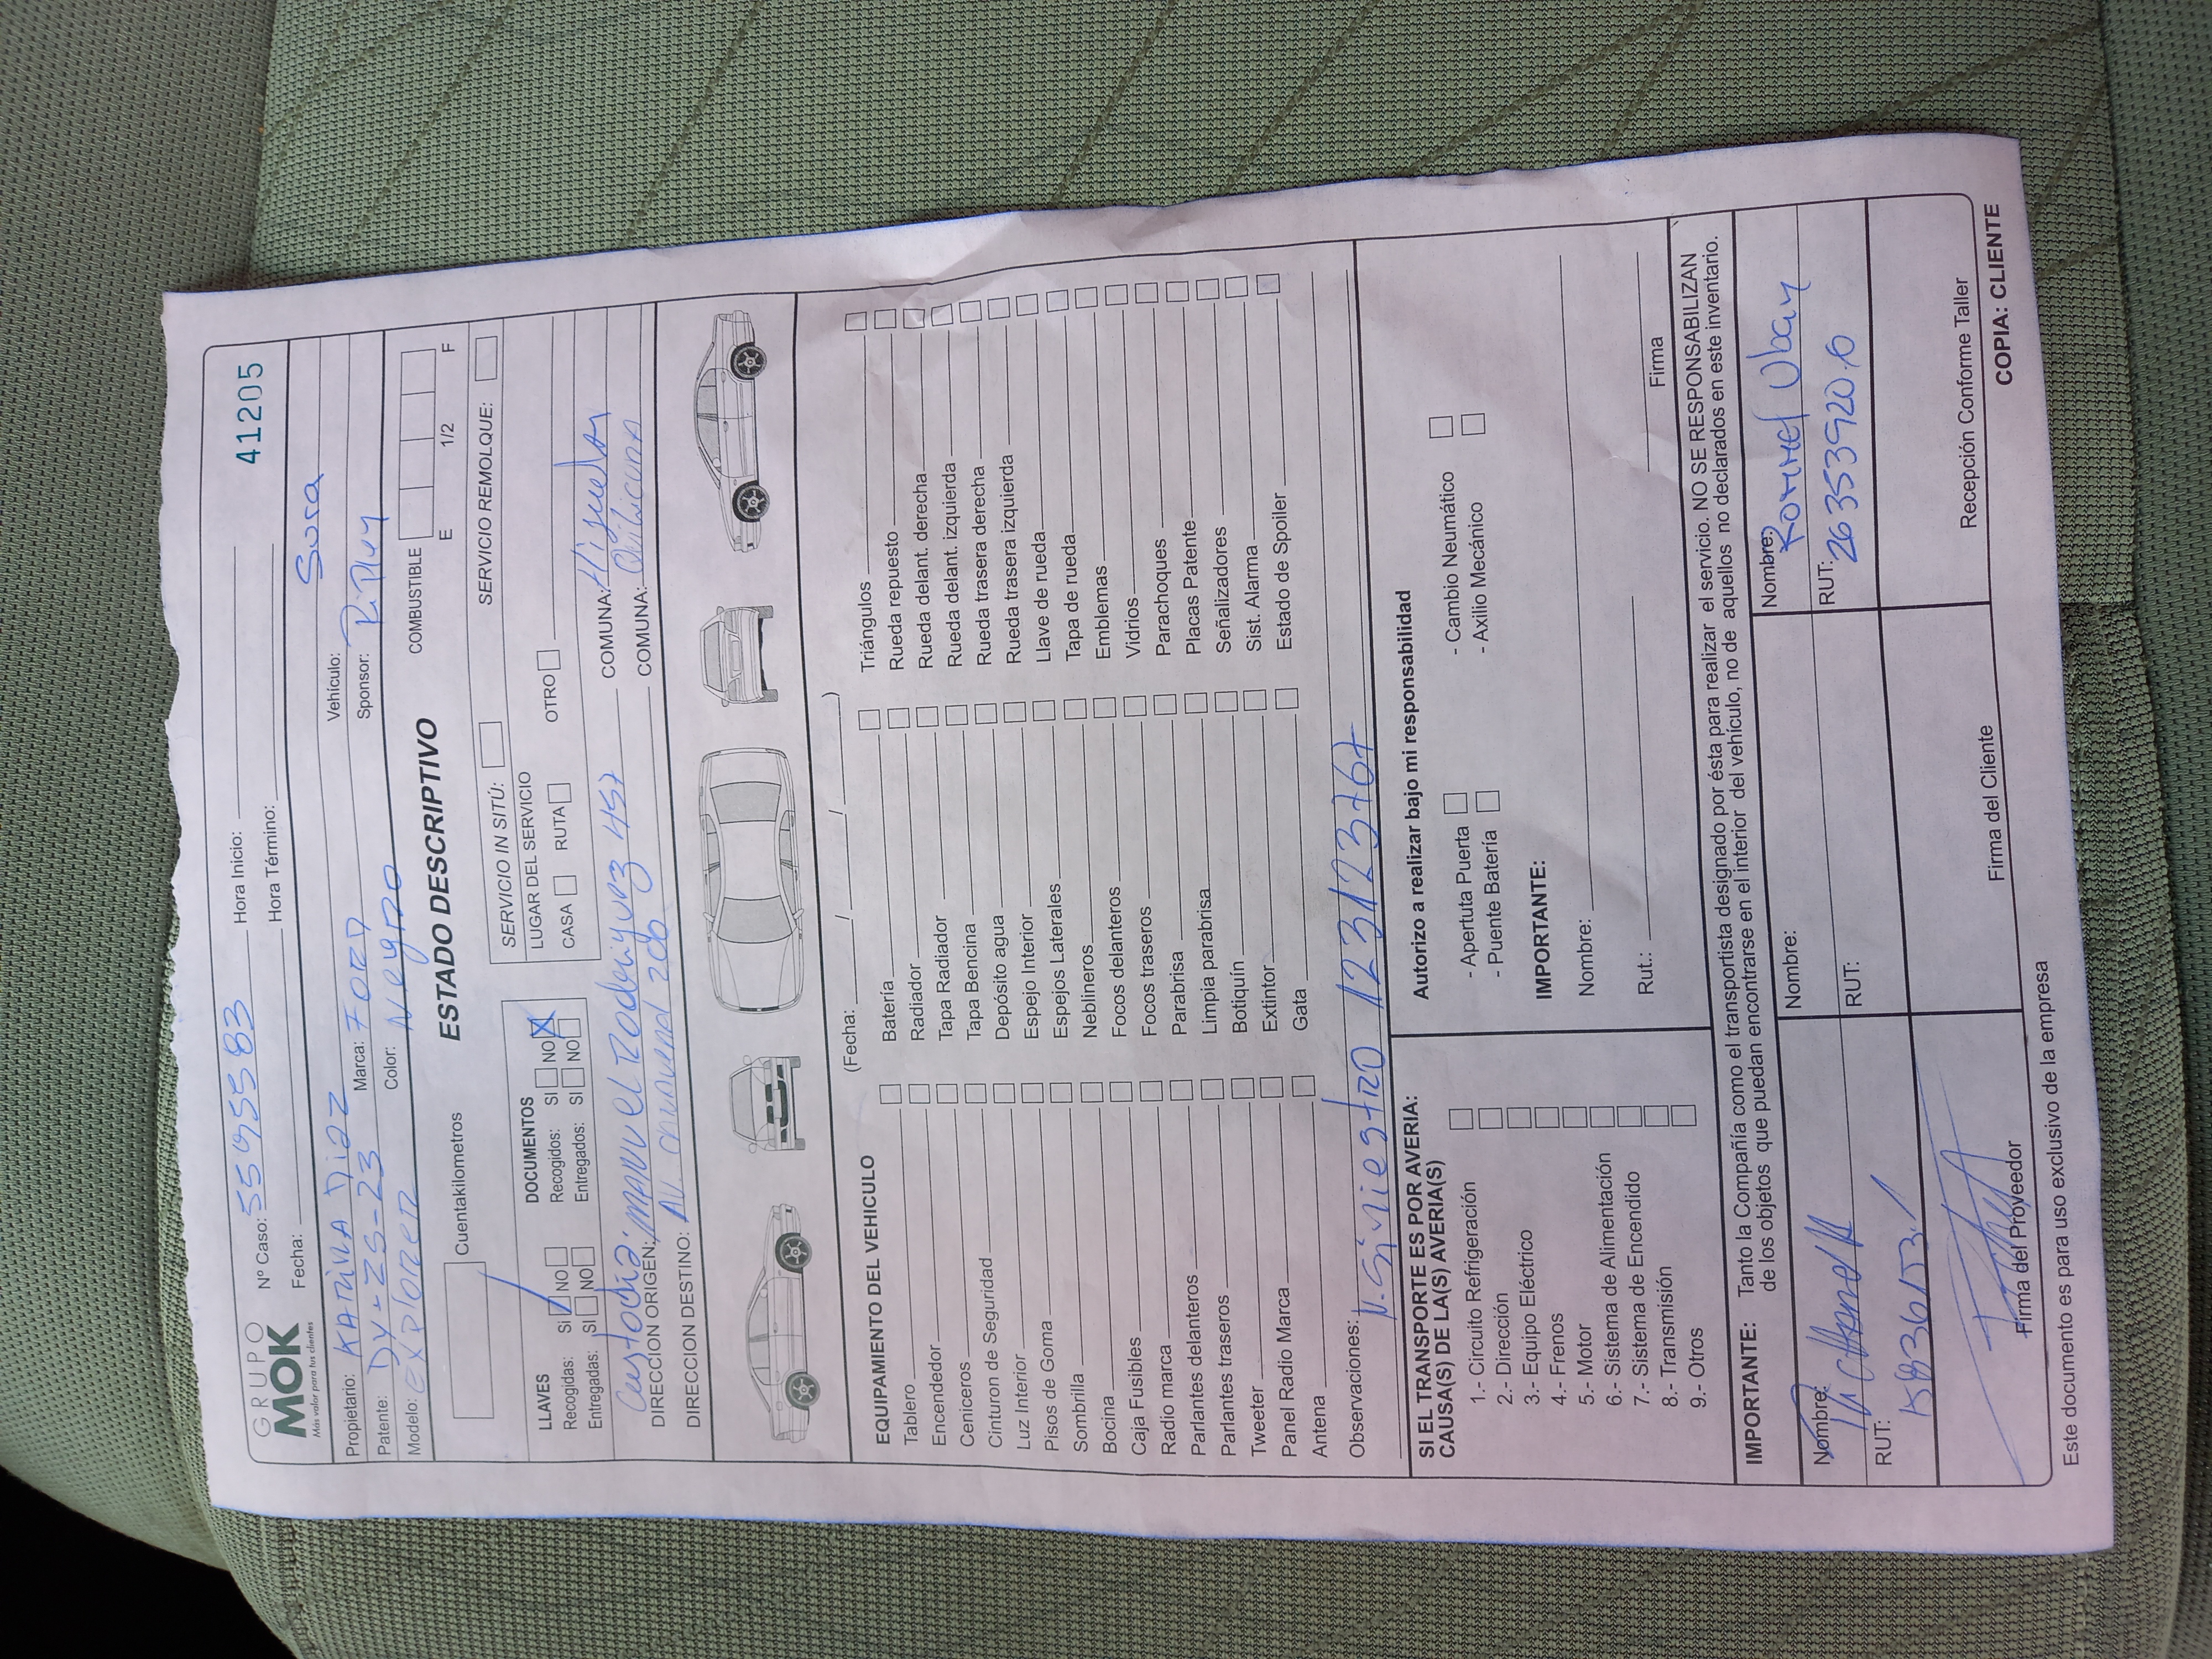 GRUPO
MOK
Más valor para tus clientes
Nº Caso: 5595583 Hora Inicio: 41205
Fecha: Hora Término:
Propietario: KATRINA DiaZ Marca: FORD Vehículo: Sura
Patente: DY-ZS-23 Color: Negro Sponsor: RiPley
Modelo: EXPlORER
ESTADO DESCRIPTIVO
COMBUSTIBLE
E 1/2 F
Cuentakilometros
SERVICIO IN SITÚ: SERVICIO REMOLQUE:
LUGAR DEL SERVICIO
CASA RUTA OTRO
LLAVES DOCUMENTOS
Recogidas: SI NO Recogidos: SI NO
Entregadas: SI NO Entregados: SI NO
Custodia.
DIRECCION ORIGEN: MANUel Rodriguez 457 COMUNA: Hijuelas
DIRECCION DESTINO: AV. 200 COMUNA: Quilicura
(Fecha: / / )
EQUIPAMIENTO DEL VEHICULO
Tablero Batería Triángulos
Encendedor Radiador Rueda repuesto
Ceniceros Tapa Radiador Rueda delant. derecha
Cinturon de Seguridad Tapa Bencina Rueda delant. izquierda
Luz Interior Depósito agua Rueda trasera derecha
Pisos de Goma Espejo Interior Rueda trasera izquierda
Sombrilla Espejos Laterales Llave de rueda
Bocina Neblineros Tapa de rueda
Caja Fusibles Focos delanteros Emblemas
Radio marca Focos traseros Vidrios
Parlantes delanteros Parabrisa Parachoques
Parlantes traseros Limpia parabrisa Placas Patente
Tweeter Botiquín Señalizadores
Panel Radio Marca Extintor Sist. Alarma
Antena Gata Estado de Spoiler
Observaciones: N. Siniestro 123123767
SI EL TRANSPORTE ES POR AVERIA:
CAUSA(S) DE LA(S) AVERIA(S)
1.- Circuito Refrigeración
2.- Dirección
3.- Equipo Eléctrico
4.- Frenos
5.- Motor
6.- Sistema de Alimentación
7.- Sistema de Encendido
8.- Transmisión
9.- Otros
Autorizo a realizar bajo mi responsabilidad
- Apertuta Puerta - Cambio Neumático
- Puente Batería - Axilio Mecánico
IMPORTANTE:
Nombre:
Rut.: Firma
IMPORTANTE: Tanto la Compañía como el transportista designado por ésta para realizar el servicio. NO SE RESPONSABILIZAN
de los objetos que puedan encontrarse en el interior del vehículo, no de aquellos no declarados en este inventario.
Nombre: Nombre: Nombre: Rommel Ubay
RUT: RUT: RUT: 26353920.6
Firma del Proveedor Firma del Cliente Recepción Conforme Taller
Este documento es para uso exclusivo de la empresa COPIA: CLIENTE